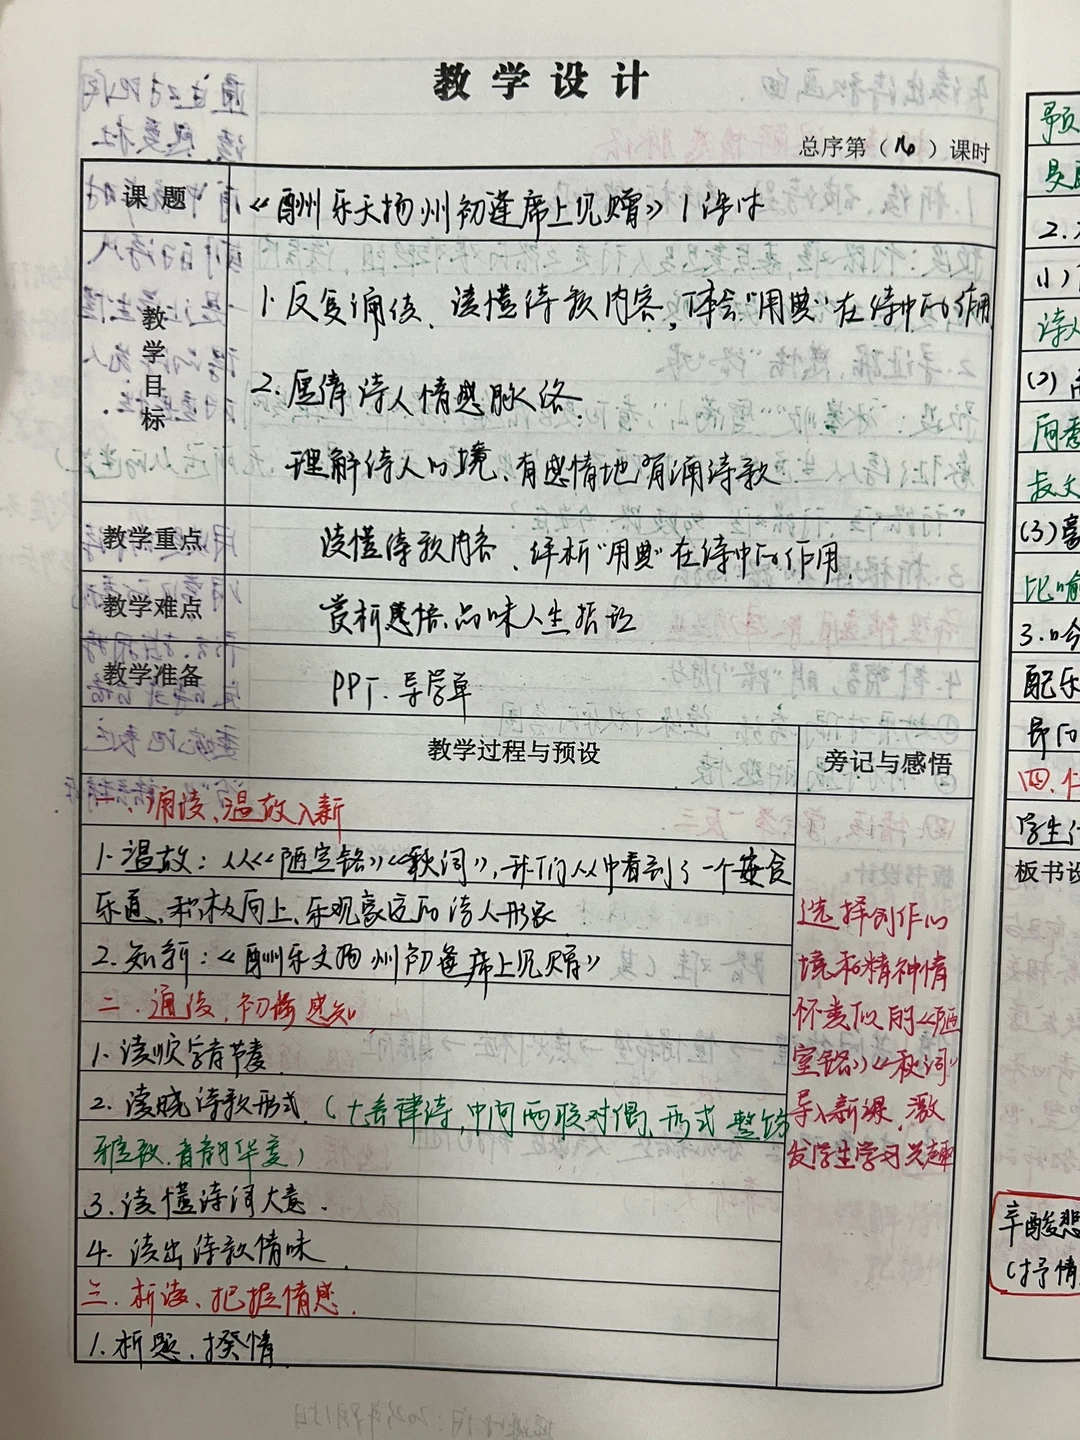 教学设计
总序第（16）课时
课题
《酬乐天扬州初逢席上见赠》1课时
教学目标
1.反复诵读、读懂诗歌内容，体会"用典"在诗中的作用
2.厘清诗人情感脉络.
理解诗人心境、有感情地背诵诗歌
教学重点
读懂诗歌内容、评析"用典"在诗中的作用.
教学难点
赏析感悟.品味人生哲理
教学准备
PPT.导学单
教学过程与预设
旁记与感悟
一、诵读、温故入新
1.温故：从《陋室铭》《秋词》，我们从中看到了一个安贫
乐道、积极向上、乐观豪迈的诗人形象
2.知新：《酬乐天扬州初逢席上见赠》
二.通读,初步感知
1.读顺字音节奏.
2.读晓诗歌形式.（七言律诗,中间两联对偶,形式整饬
雅致.音韵华美）
3.读懂诗词大意.
4.读出诗歌情味.
三.析读、把握情感.
1.析题.揆情.
选择创作心
境和精神情
怀类似的《陋
室铭》《秋词》
导入新课.激
发学生学习兴趣
2.
(2)
(3)
3.
配乐
四.
学生
板书设
辛酸悲
（抒情